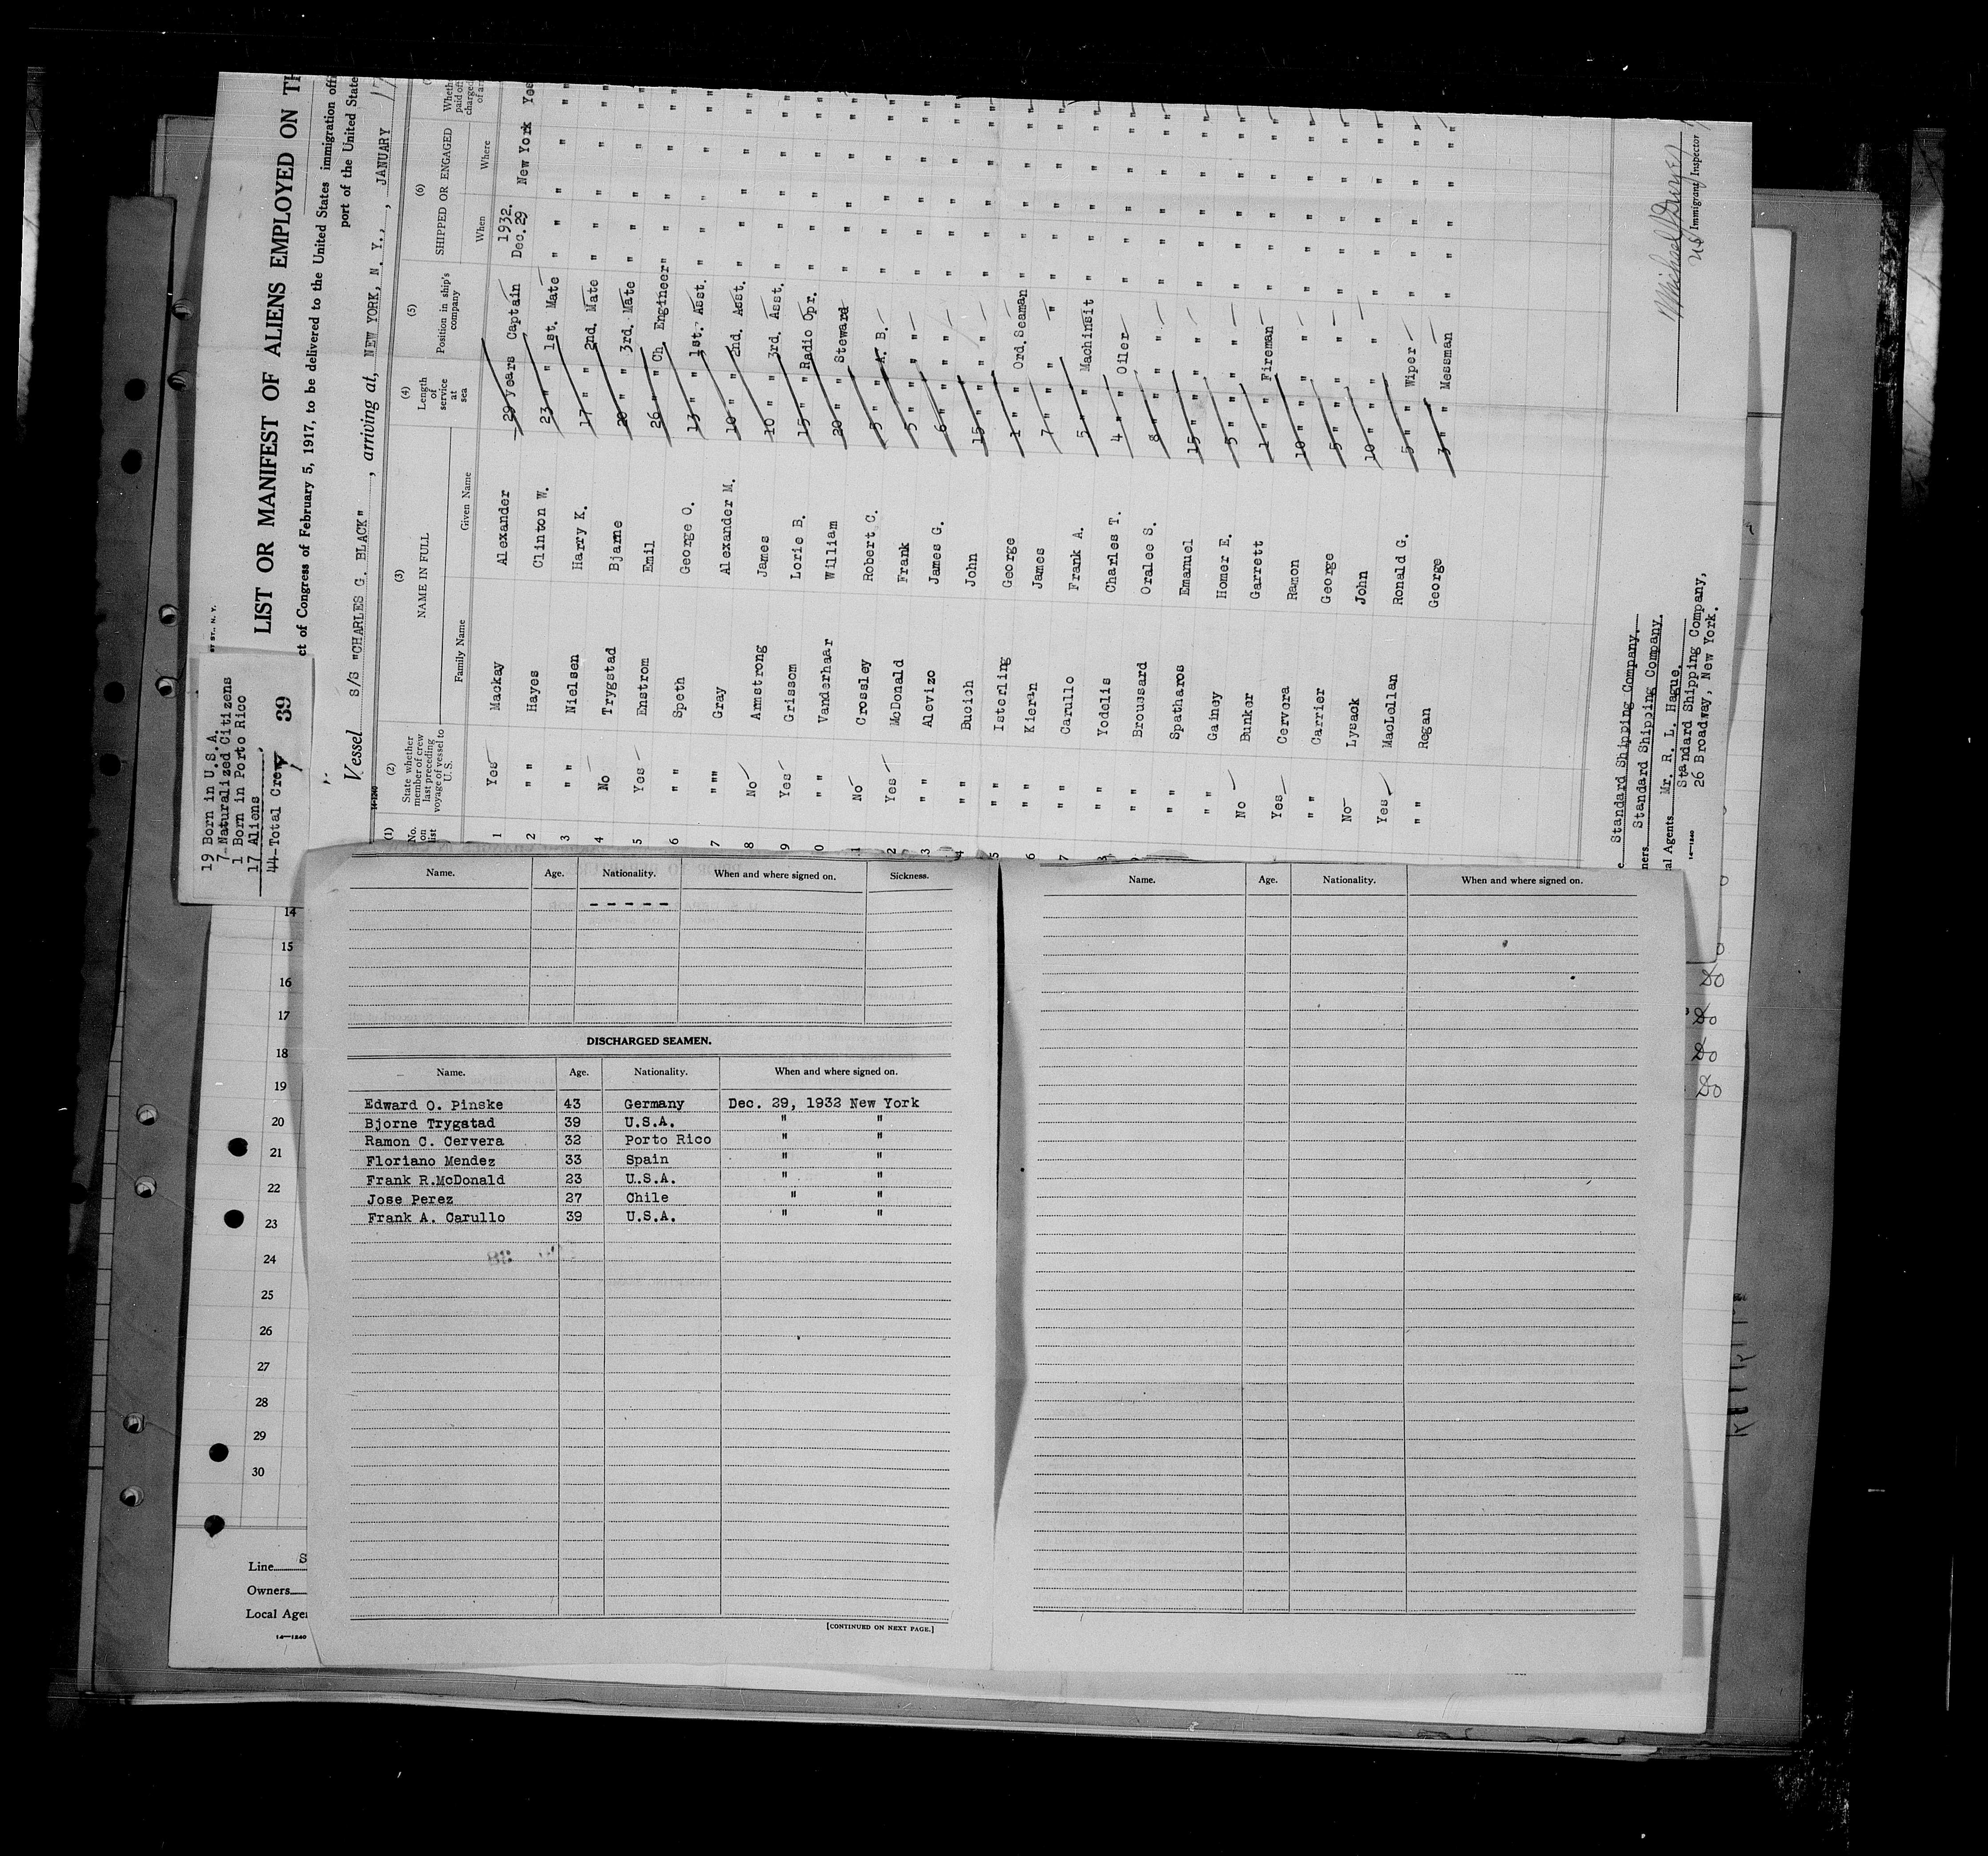 LIST OR MANIFEST OF ALIENS EMPLOYED ON TH
ct of Congress of February 5, 1917, to be delivered to the United States immigration offi
port of the United State
Vessel S/S "CHARLES G. BLACK", arriving at, NEW YORK, N. Y., , JANUARY 17
(1) No. on list
(2) State whether member of crew last preceding voyage of vessel to U. S.
(3) NAME IN FULL
Family Name Given Name
(4) Length of service at sea
(5) Position in ship's company
(6) SHIPPED OR ENGAGED
When Where
1 Yes Mackay Alexander 29 years Captain 1932. Dec.29 New York Yes
2 " " Hayes Clinton W. 23 " " 1st. Mate " " " "
3 " " Nielsen Harry K. 17 " " 2nd. Mate " " " "
4 No Trygstad Bjarne 20 " " 3rd. Mate " " " "
5 Yes Enstrom Emil 26 " " Ch. Engineer " " " "
6 " " Speth George O. 13 " " 1st. Asst. " " " "
7 " "" Gray Alexander M. 10 " " 2nd. Asst. " " " "
8 No Armstrong James 10 " " 3rd. Asst. " " " "
9 Yes Grissom Lorie B. 15 " " Radio Opr. " " " "
0 " " Vanderhaar William 20 " " Steward " " " "
1 No Crossley Robert C. 5 " " A. B. " " " "
2 Yes McDonald Frank 5 " " " " " " "
3 " " Alevizo James G. 6 " " " " " " "
4 " " Bucich John 15 " " " " " " "
5 " " Isterling George 1 " " Ord. Seaman " " " "
6 " " Kieran James 7 " " " " " " "
7 " " Carullo Frank A. 5 " " Machinsit " " " "
8 " " Yodelis Charles T. 4 " " Oiler " " " "
" " Broussard Oralee S. 8 " " " " " " "
" " Spatharos Emanuel 15 " " " " " " "
" " Gainey Homer E. 5 " " " " " " "
No Bunker Garrett 1 " " Fireman " " " "
Yes Cervera Ramon 10 " " " " " " "
" " Carrier George 5 " " " " " " "
No Lysack John 10 " " " " " " "
Yes MacLellan Ronald G. 5 " " Wiper " " " "
" " Regan George 3 " " Messman " " " "
Standard Shipping Company.
ners Standard Shipping Company.
al Agents Mr. R. L. Hague.
Standard Shipping Company,
26 Broadway, New York.
14-1240
Immigrant Inspector
19 Born in U.S.A.
7-Naturalized Citizens
1 Born in Porto Rico
17 Aliens
44-Total Crew 39
Name. Age. Nationality. When and where signed on. Sickness.
- - - - -
DISCHARGED SEAMEN.
Name. Age. Nationality. When and where signed on.
Edward O. Pinske 43 Germany Dec. 29, 1932 New York
Bjorne Trygstad 39 U.S.A. " "
Ramon C. Cervera 32 Porto Rico " "
Floriano Mendez 33 Spain " "
Frank R.McDonald 23 U.S.A. " "
Jose Perez 27 Chile " "
Frank A. Carullo 39 U.S.A. " "
[CONTINUED ON NEXT PAGE.]
Name. Age. Nationality. When and where signed on.
14
15
16
17
18
19
20
21
22
23
24
25
26
27
28
29
30
Line
Owners
Local Age
14-1240